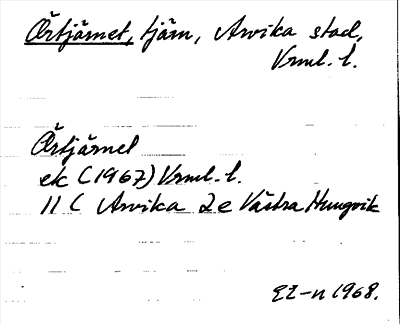 Örtjärnet, tjärn, Arvika stad,
Vrml. l.
Örtjärnet
ek (1967) Vrml. l.
11 C Arvika 2 e Västra Hungvik
EL-n 1968.